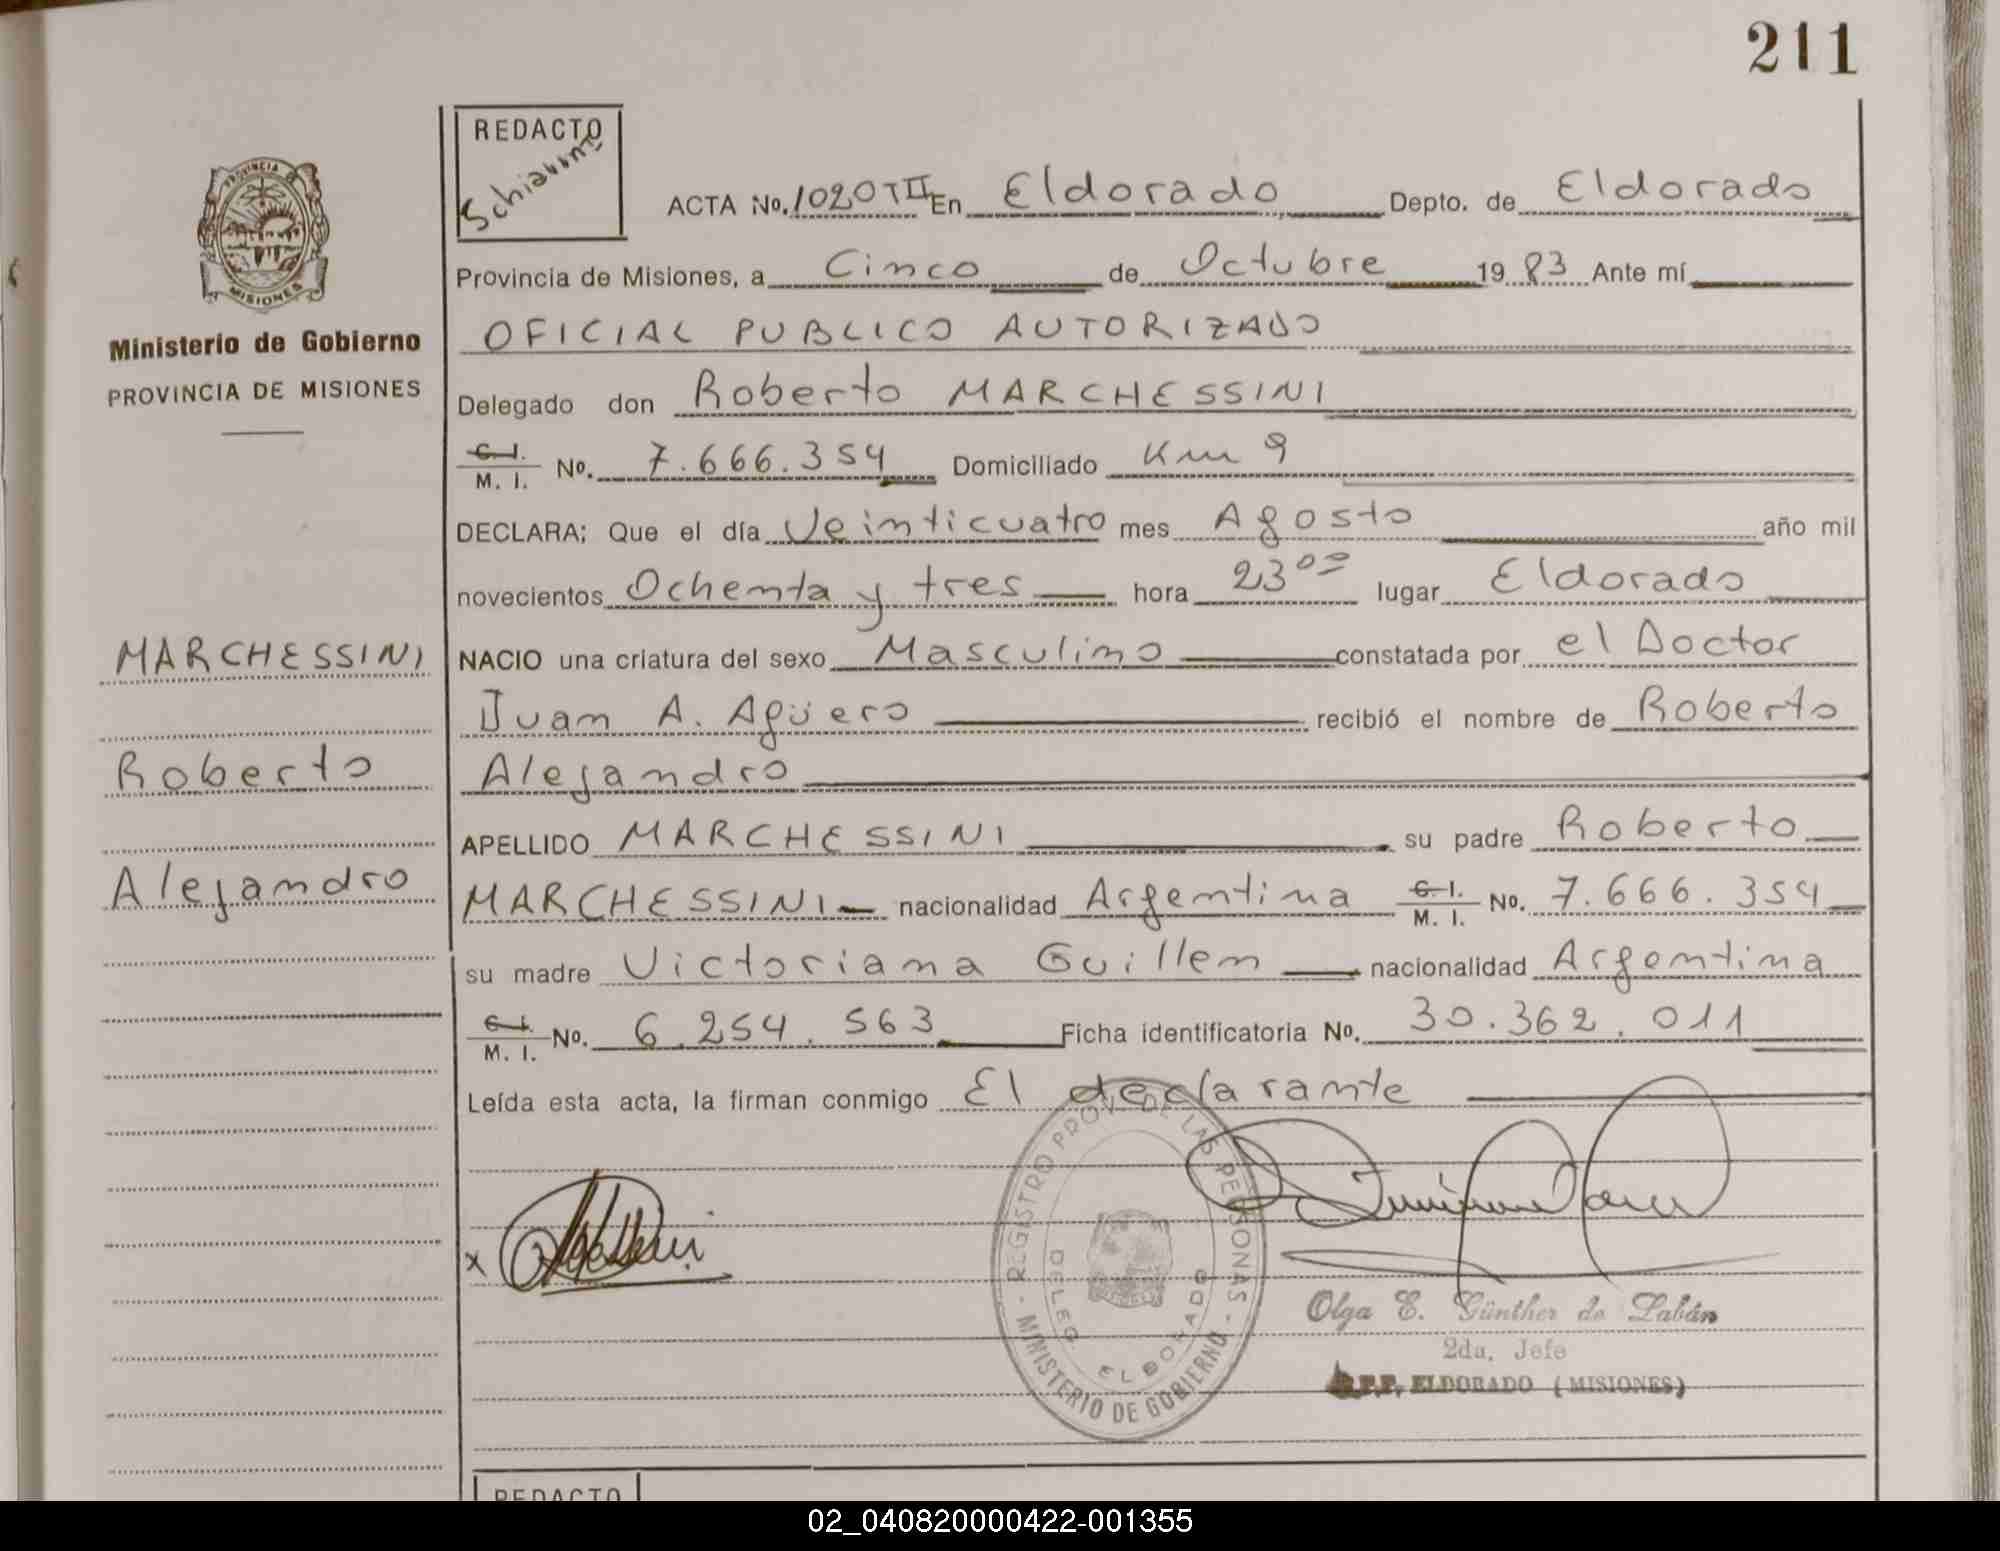 211
REDACTO
Schiavoni
ACTA No. 1020 TII En Eldorado Depto. de Eldorado
Provincia de Misiones, a Cinco de Octubre 1983 Ante mí
OFICIAL PUBLICO AUTORIZADO
Delegado don Roberto MARCHESSINI
C. I.
M. I. No. 7.666.354 Domiciliado Km 9
DECLARA; Que el día Veinticuatro mes Agosto año mil
novecientos Ochenta y tres hora 23 00 lugar Eldorado
NACIO una criatura del sexo Masculino constatada por el Doctor
Juan A. Agüero recibió el nombre de Roberto
Alejandro
APELLIDO MARCHESSINI su padre Roberto
MARCHESSINI nacionalidad Argentina C. I. M. I. No. 7.666.354
su madre Victoriana Guillem nacionalidad Argentina
C. I.
M. I. No. 6.254.563 Ficha identificatoria No. 30.362.011
Leída esta acta, la firman conmigo El declarante
PROVINCIA
MISIONES
Ministerio de Gobierno
PROVINCIA DE MISIONES
MARCHESSINI
Roberto
Alejandro
x
REGISTRO PROV. DE LAS PERSONAS - MINISTERIO DE GOBIERNO -
DELEG. ELDORADO
Olga E. Günther de Labán
2da. Jefe
ELDORADO (MISIONES)
REDACTO
02_040820000422-001355